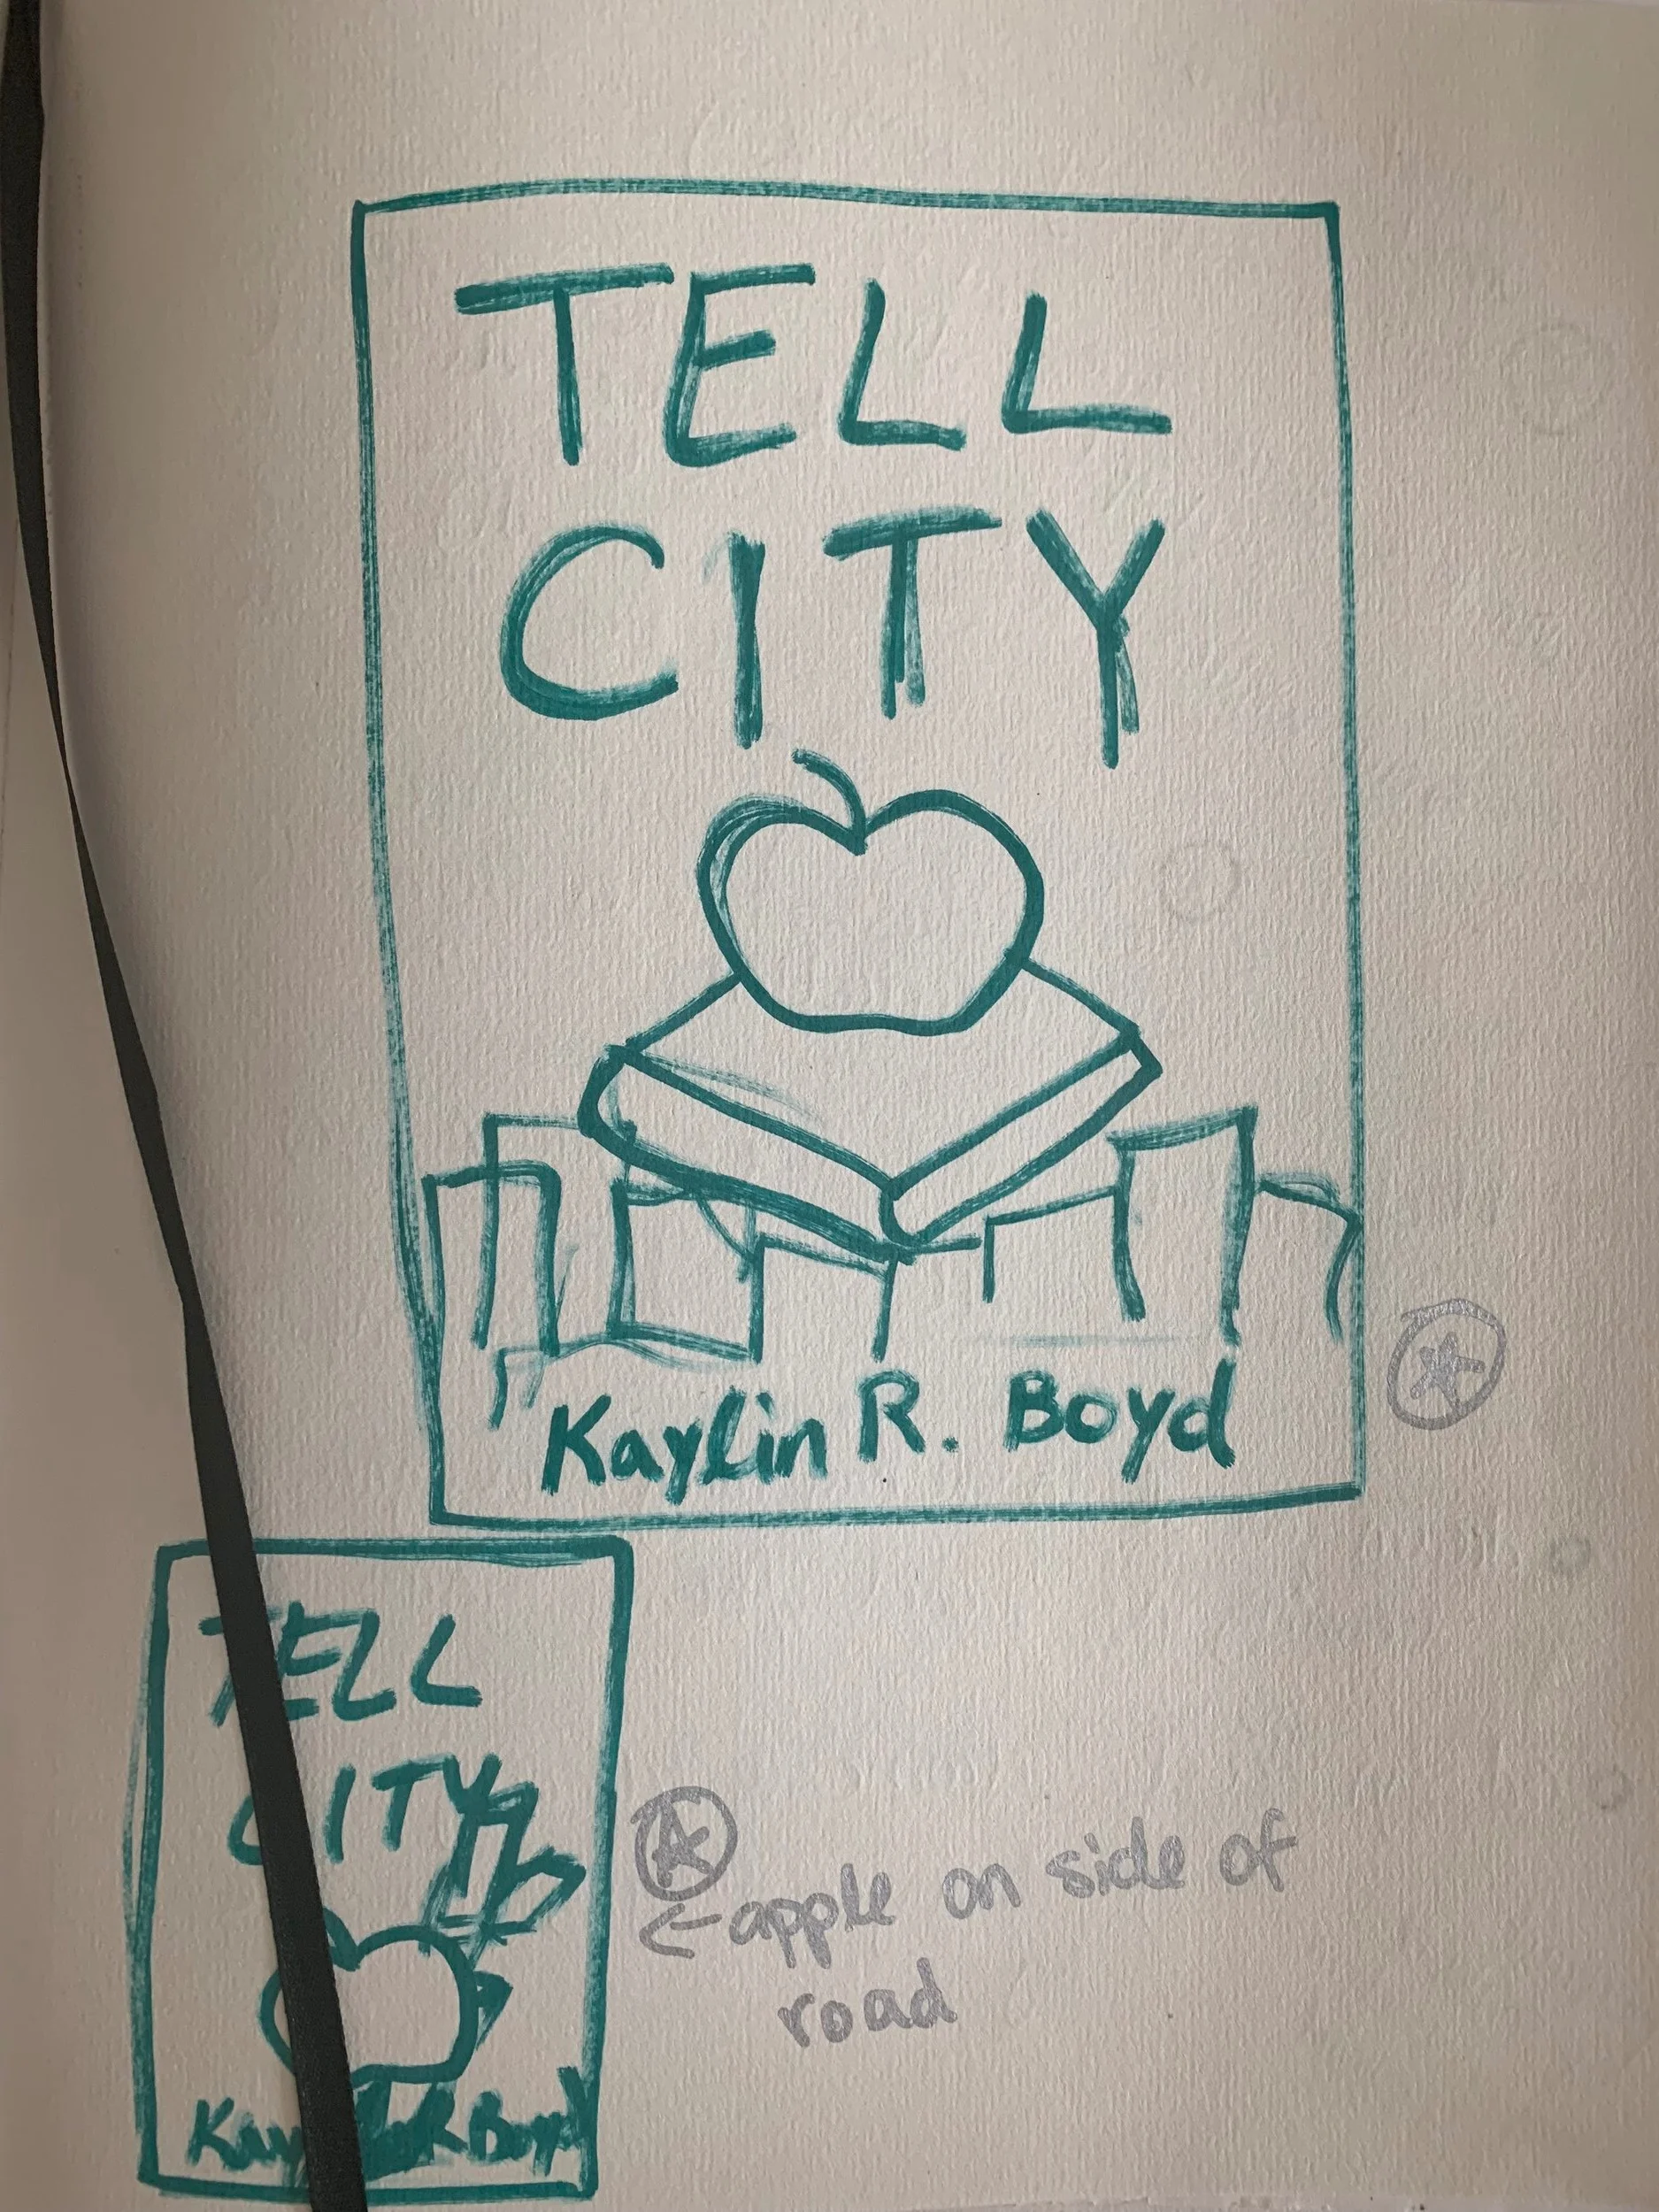 TELL
CITY
Kaylin R. Boyd
TELL
CITY
← apple on side of
road
R Boyd